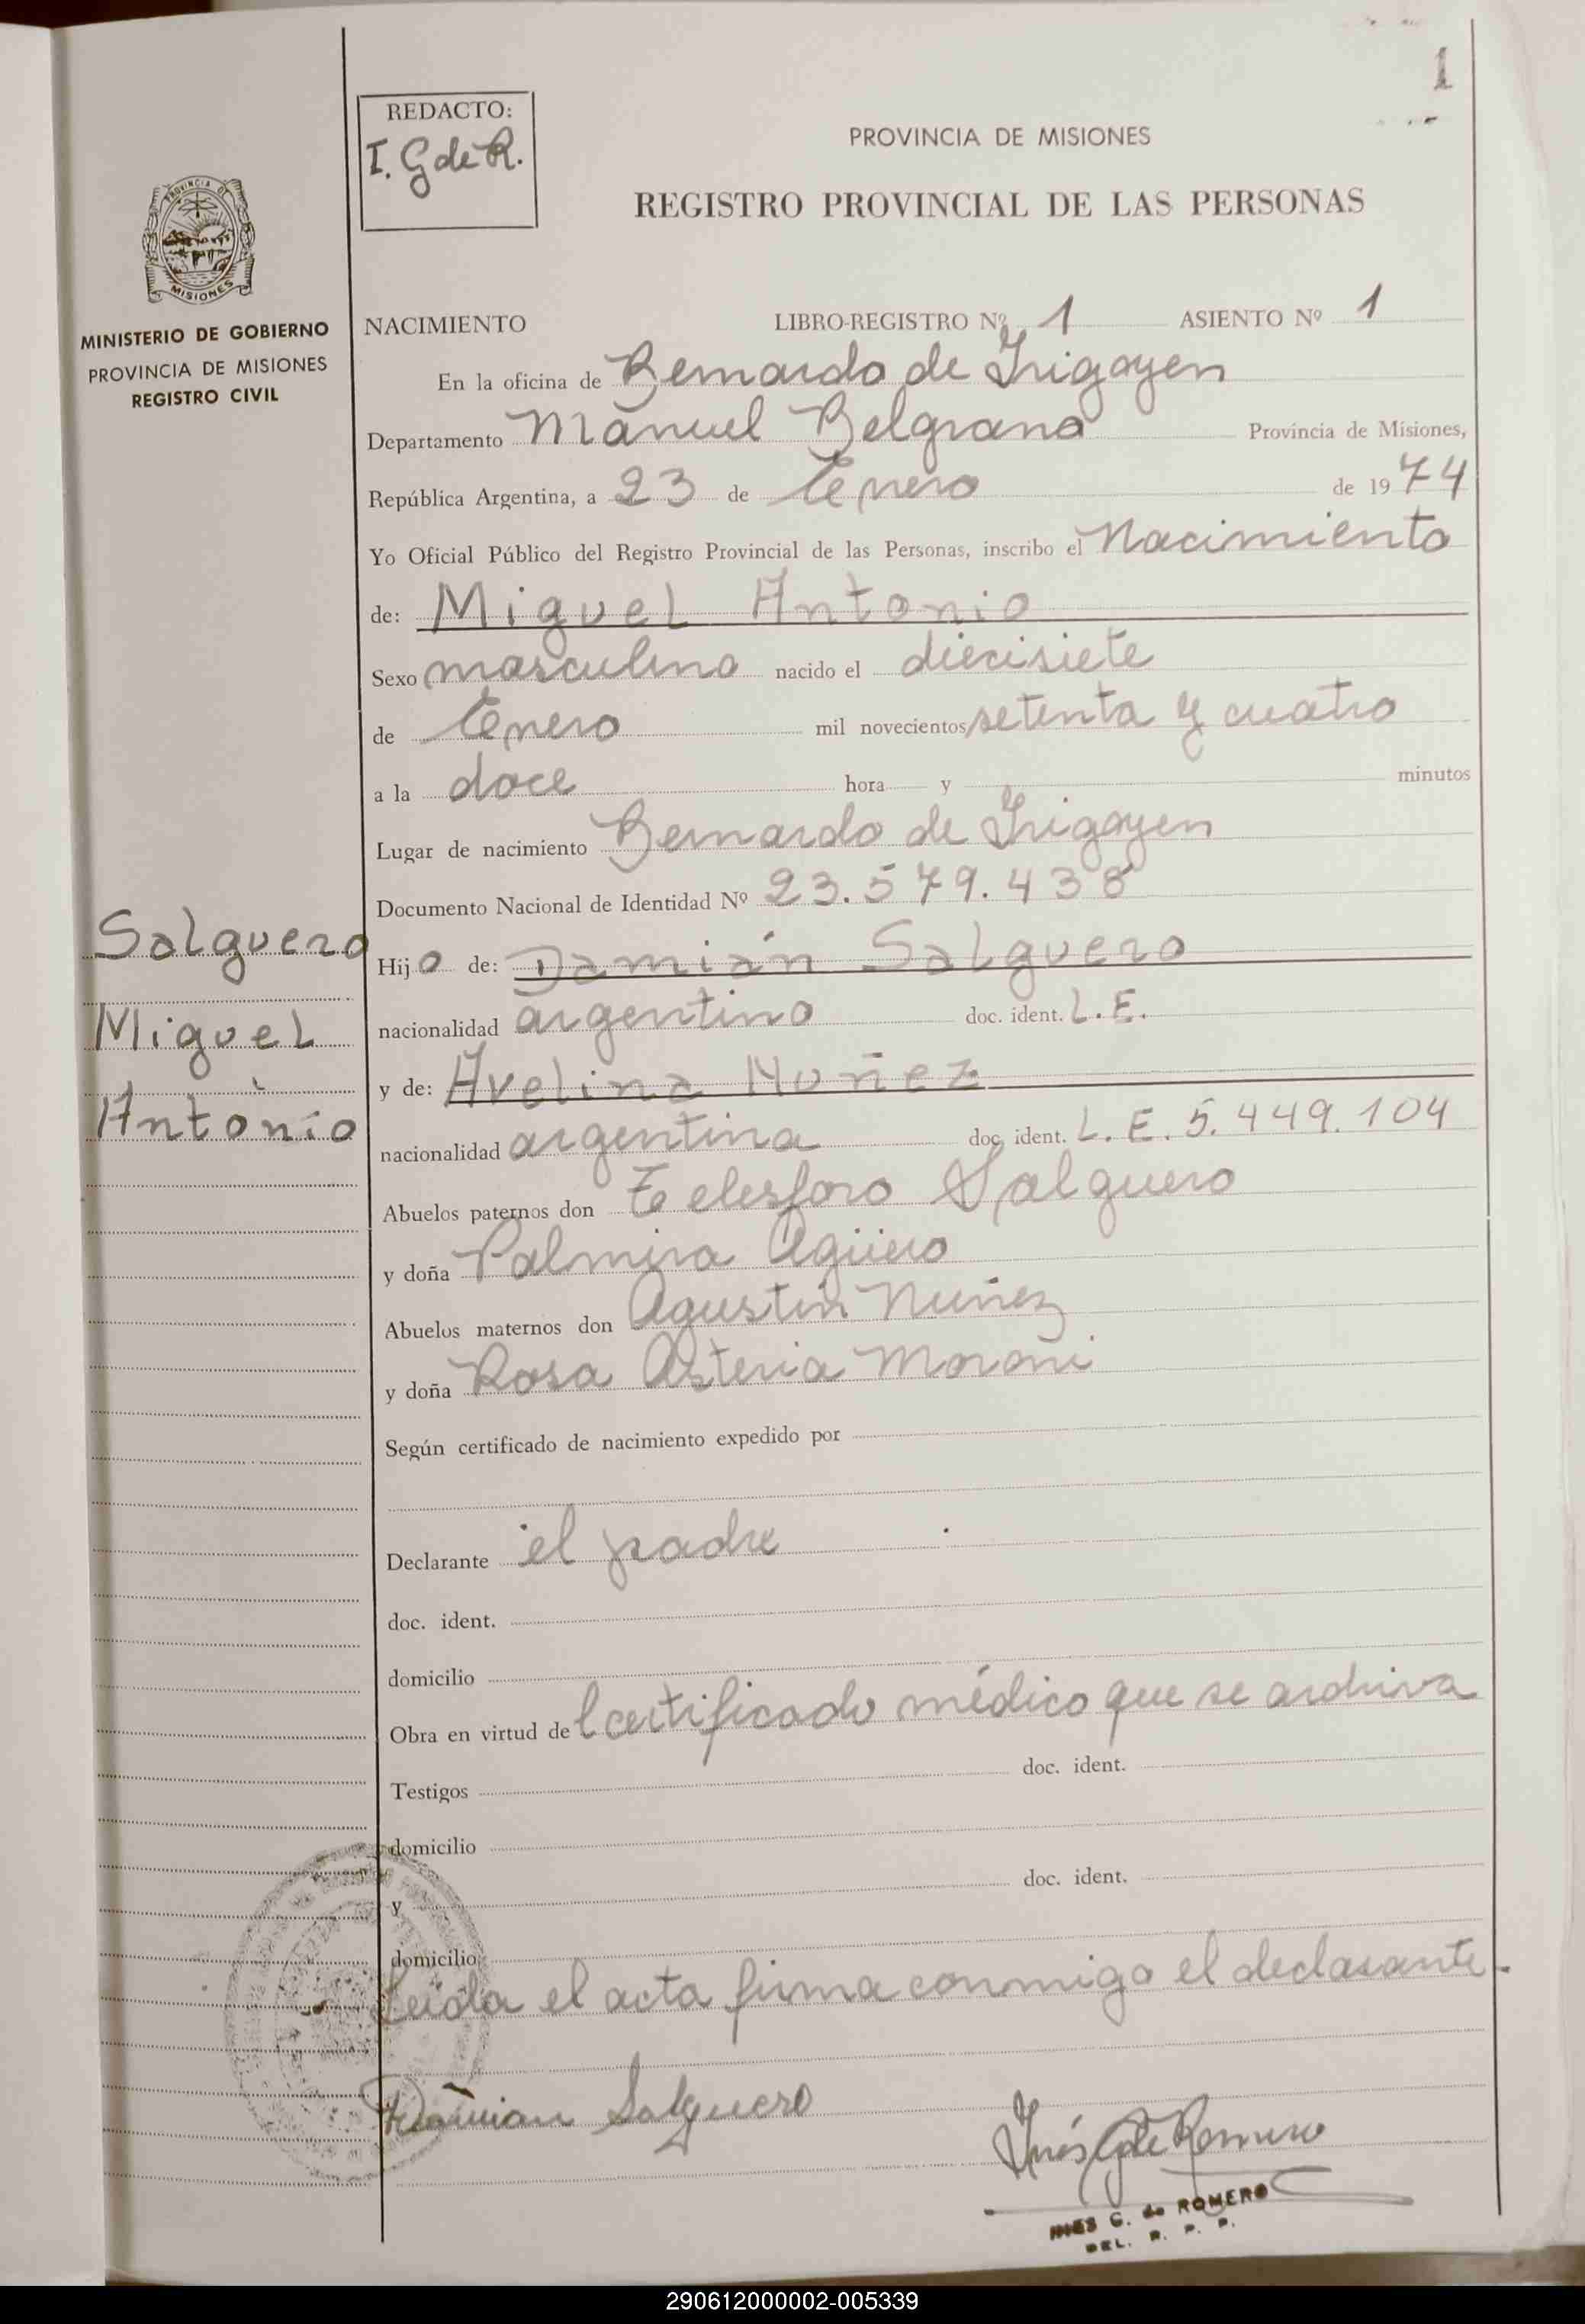 1
REDACTO:
I. G de R.
PROVINCIA DE MISIONES
REGISTRO PROVINCIAL DE LAS PERSONAS
PROVINCIA DE
MISIONES
MINISTERIO DE GOBIERNO
PROVINCIA DE MISIONES
REGISTRO CIVIL
NACIMIENTO LIBRO-REGISTRO Nº 1 ASIENTO Nº 1
En la oficina de Bernardo de Irigoyen
Departamento Manuel Belgrano Provincia de Misiones,
República Argentina, a 23 de Enero de 1974
Yo Oficial Público del Registro Provincial de las Personas, inscribo el Nacimiento
de: Miguel Antonio
Sexo masculino nacido el diecisiete
de Enero mil novecientos setenta y cuatro
a la doce hora y minutos
Lugar de nacimiento Bernardo de Irigoyen
Documento Nacional de Identidad Nº 23.579.438
Salguero
Miguel
Antonio
Hijo de: Damián Salguero
nacionalidad argentino doc. ident. L.E.
y de: Avelina Nuñez
nacionalidad argentina doc. ident. L.E. 5.449.104
Abuelos paternos don Telesforo Salguero
y doña Palmira Agüero
Abuelos maternos don Agustín Nuñez
y doña Rosa Asteria
Según certificado de nacimiento expedido por
Declarante el padre
doc. ident.
domicilio
Obra en virtud del certificado médico que se archiva
Testigos doc. ident.
domicilio
y doc. ident.
domicilio
Leída el acta firma conmigo el declarante.
Damian Salguero
Inés G de Romero
INES G. de ROMERO
DEL. R. P. P.
290612000002-005339